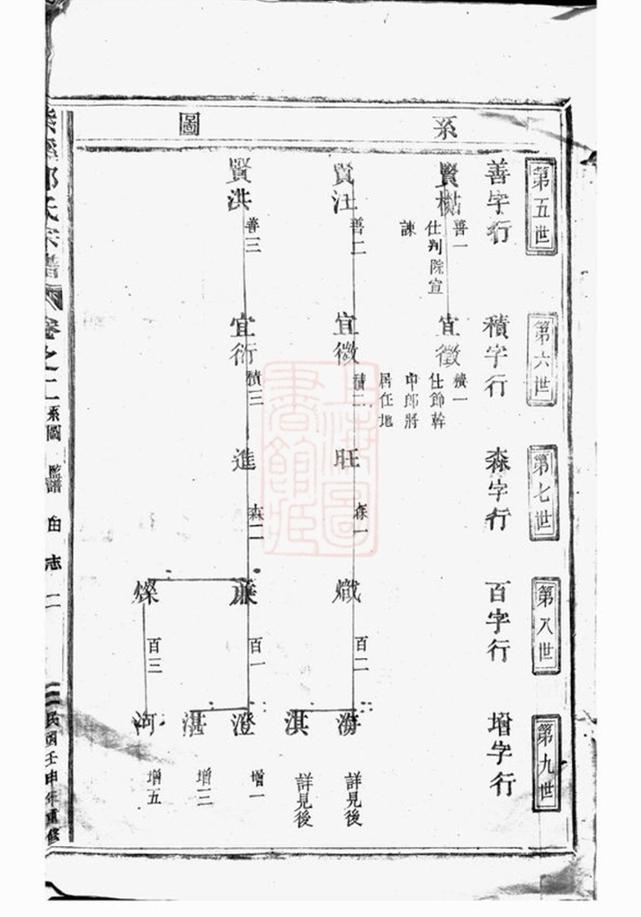 系圖
第五世
第六世
第七世
第八世
第九世
善字行
積字行
森字行
百字行
增字行
善一
仕判院宣
諫
宜徵
積一
仕節幹
中郎將
居任地
賢汪
善二
宜徵
積二
旺
森一
熾
百二
詳見後
淇
詳見後
賢洪
善三
宜衍
積三
進
森二
百一
澄
增一
湛
增三
燦
百三
河
增五
氏宗譜
卷之二
系圖
監譜
由志
二
民國壬申年重修
上海圖書館藏